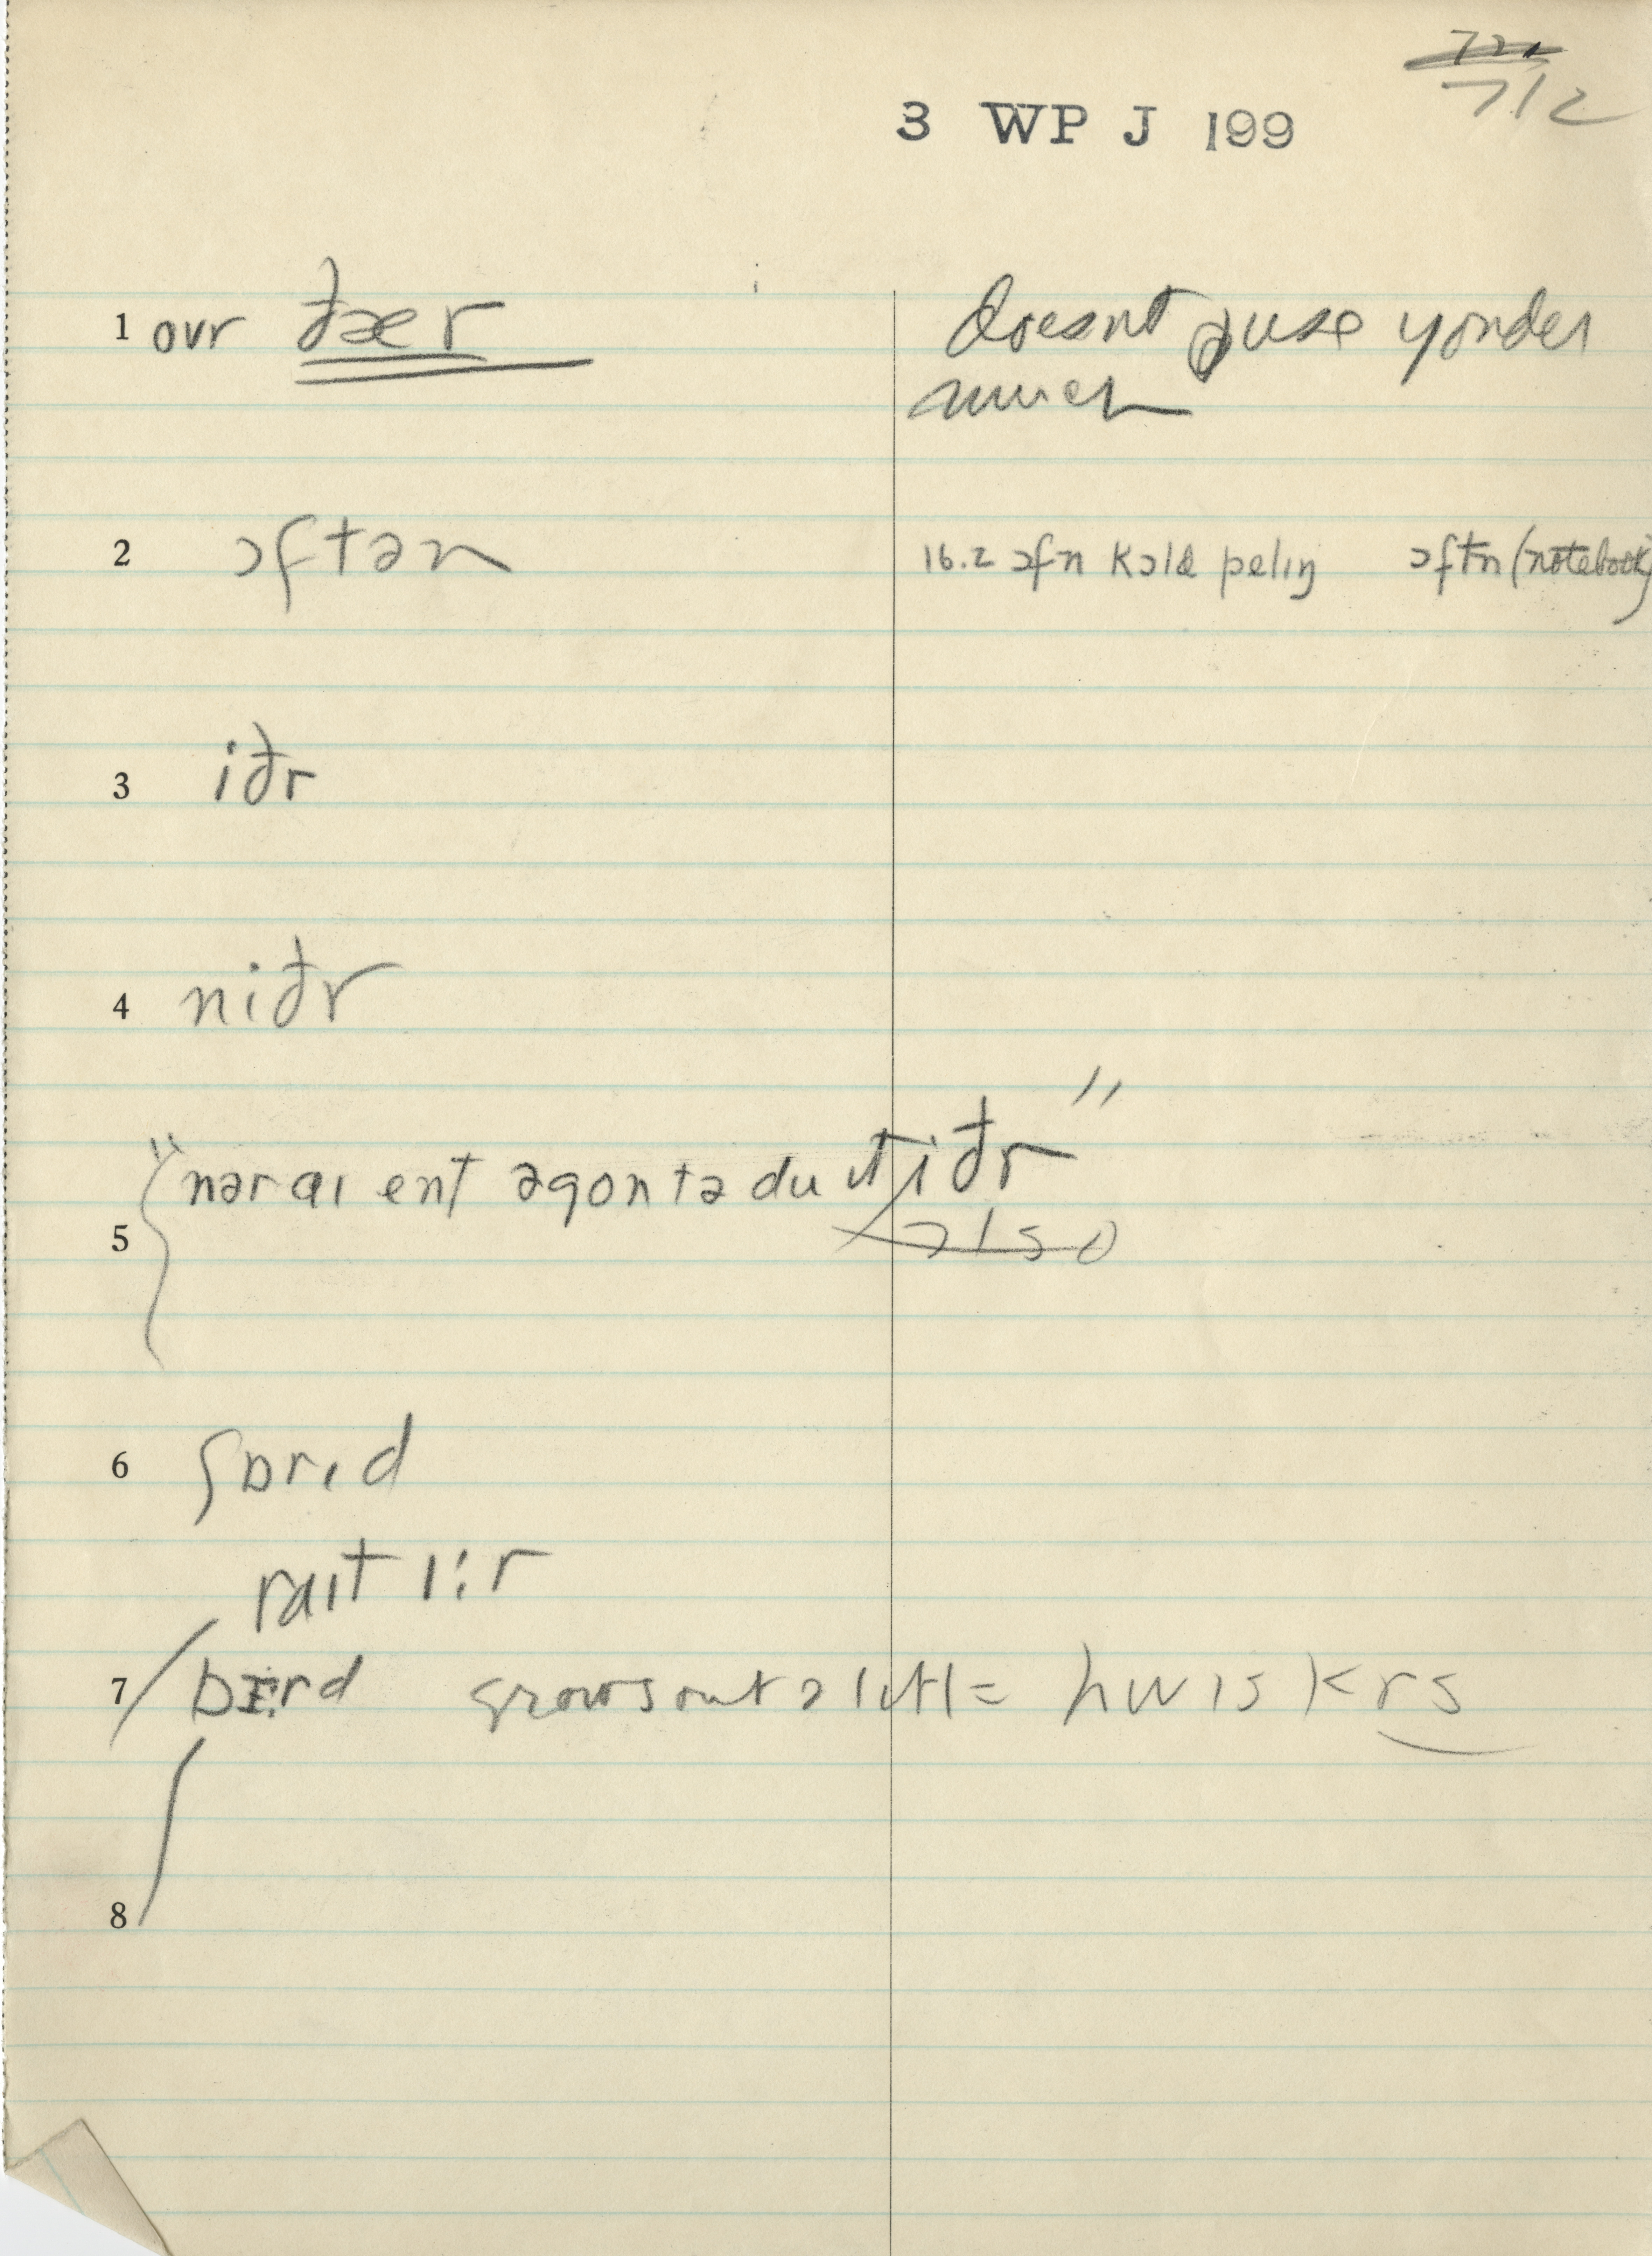 712
3 WP J 199
1 ovr ðær doesnt use yonder
much
2 ɔftən 16.2 ɔfn kɔld pelɪŋ ɔftn (notebook)
3 iðr
4 niðr
"nər aɪ ent əgontədu ɪt iðr"
5 also
6 fɒrɪd
raɪt ɪ:r
7 bɪrd grows out ə lɪtl = hwɪskrs
8